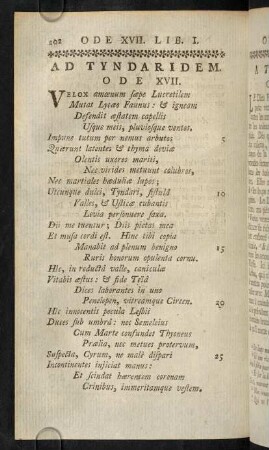 202 ODE XVII. LIB. I.
AD TYNDARIDEM.
ODE XVII.
VELOX amœnum sæpe Lucretilem
Mutat Lycæo Faunus: & igneam
Defendit æstatem capellis
Usque meis, pluviosque ventos.
Impune tutum per nemus arbutos 5
Quærunt latentes & thyma deviæ
Olentis uxores mariti,
Nec virides metuunt colubros,
Nec martiales hæduliæ lupos;
Utcunque dulci, Tyndari, fistulâ 10
Valles, & Usticæ cubantis
Levia personuere saxa.
Dii me tuentur; Diis pietas mea
Et musa cordi est. Hinc tibi copia
Manabit ad plenum benigno 15
Ruris honorum opulenta cornu.
Hîc, in reductâ valle, caniculæ
Vitabis æstus: & fide Teiâ
Dices laborantes in uno
Penelopen, vitreamque Circen. 20
Hîc innocentis pocula Lesbii
Duces sub umbrâ: nec Semeleius
Cum Marte confundet Thyoneus
Prælia, nec metues protervum,
Suspecta, Cyrum, ne malè dispari 25
Incontinentes injiciat manus:
Et scindat hærentem coronam
Crinibus, immeritamque vestem.